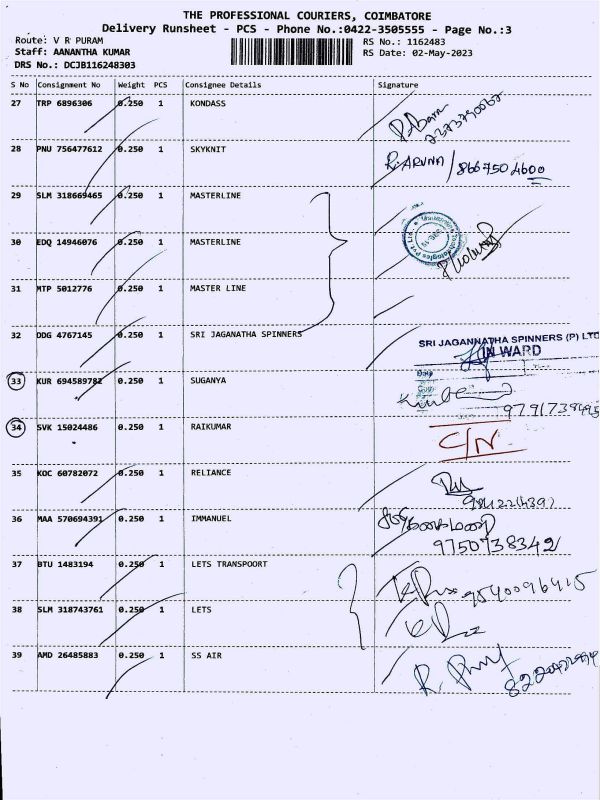 THE PROFESSIONAL COURIERS, COIMBATORE
Delivery Runsheet - PCS - Phone No.:0422-3505555 - Page No.:3
Route: V R PURAM
RS No.: 1162483
Staff: AANANTHA KUMAR
RS Date: 02-May-2023
DRS No.: DCJB116248303
S No Consignment No Weight PCS Consignee Details Signature
27 TRP 6896306 0.250 1 KONDASS
28 PNU 756477612 0.250 1 SKYKNIT
R. ARUNA / 8667504600
29 SLM 318669465 0.250 1 MASTERLINE
30 EDQ 14946076 0.250 1 MASTERLINE
31 MTP 5012776 0.250 1 MASTER LINE
32 DDG 4767145 0.250 1 SRI JAGANATHA SPINNERS
SRI JAGANNATHA SPINNERS (P) LTD
INWARD
33 KUR 694589782 0.250 1 SUGANYA
9791738495
34 SVK 15024486 0.250 1 RAIKUMAR
C/N
35 KOC 60782072 0.250 1 RELIANCE
36 MAA 570694391 0.250 1 IMMANUEL
9750738342
37 BTU 1483194 0.250 1 LETS TRANSPOORT
9540096415
38 SLM 318743761 0.250 1 LETS
39 AMD 26485883 0.250 1 SS AIR